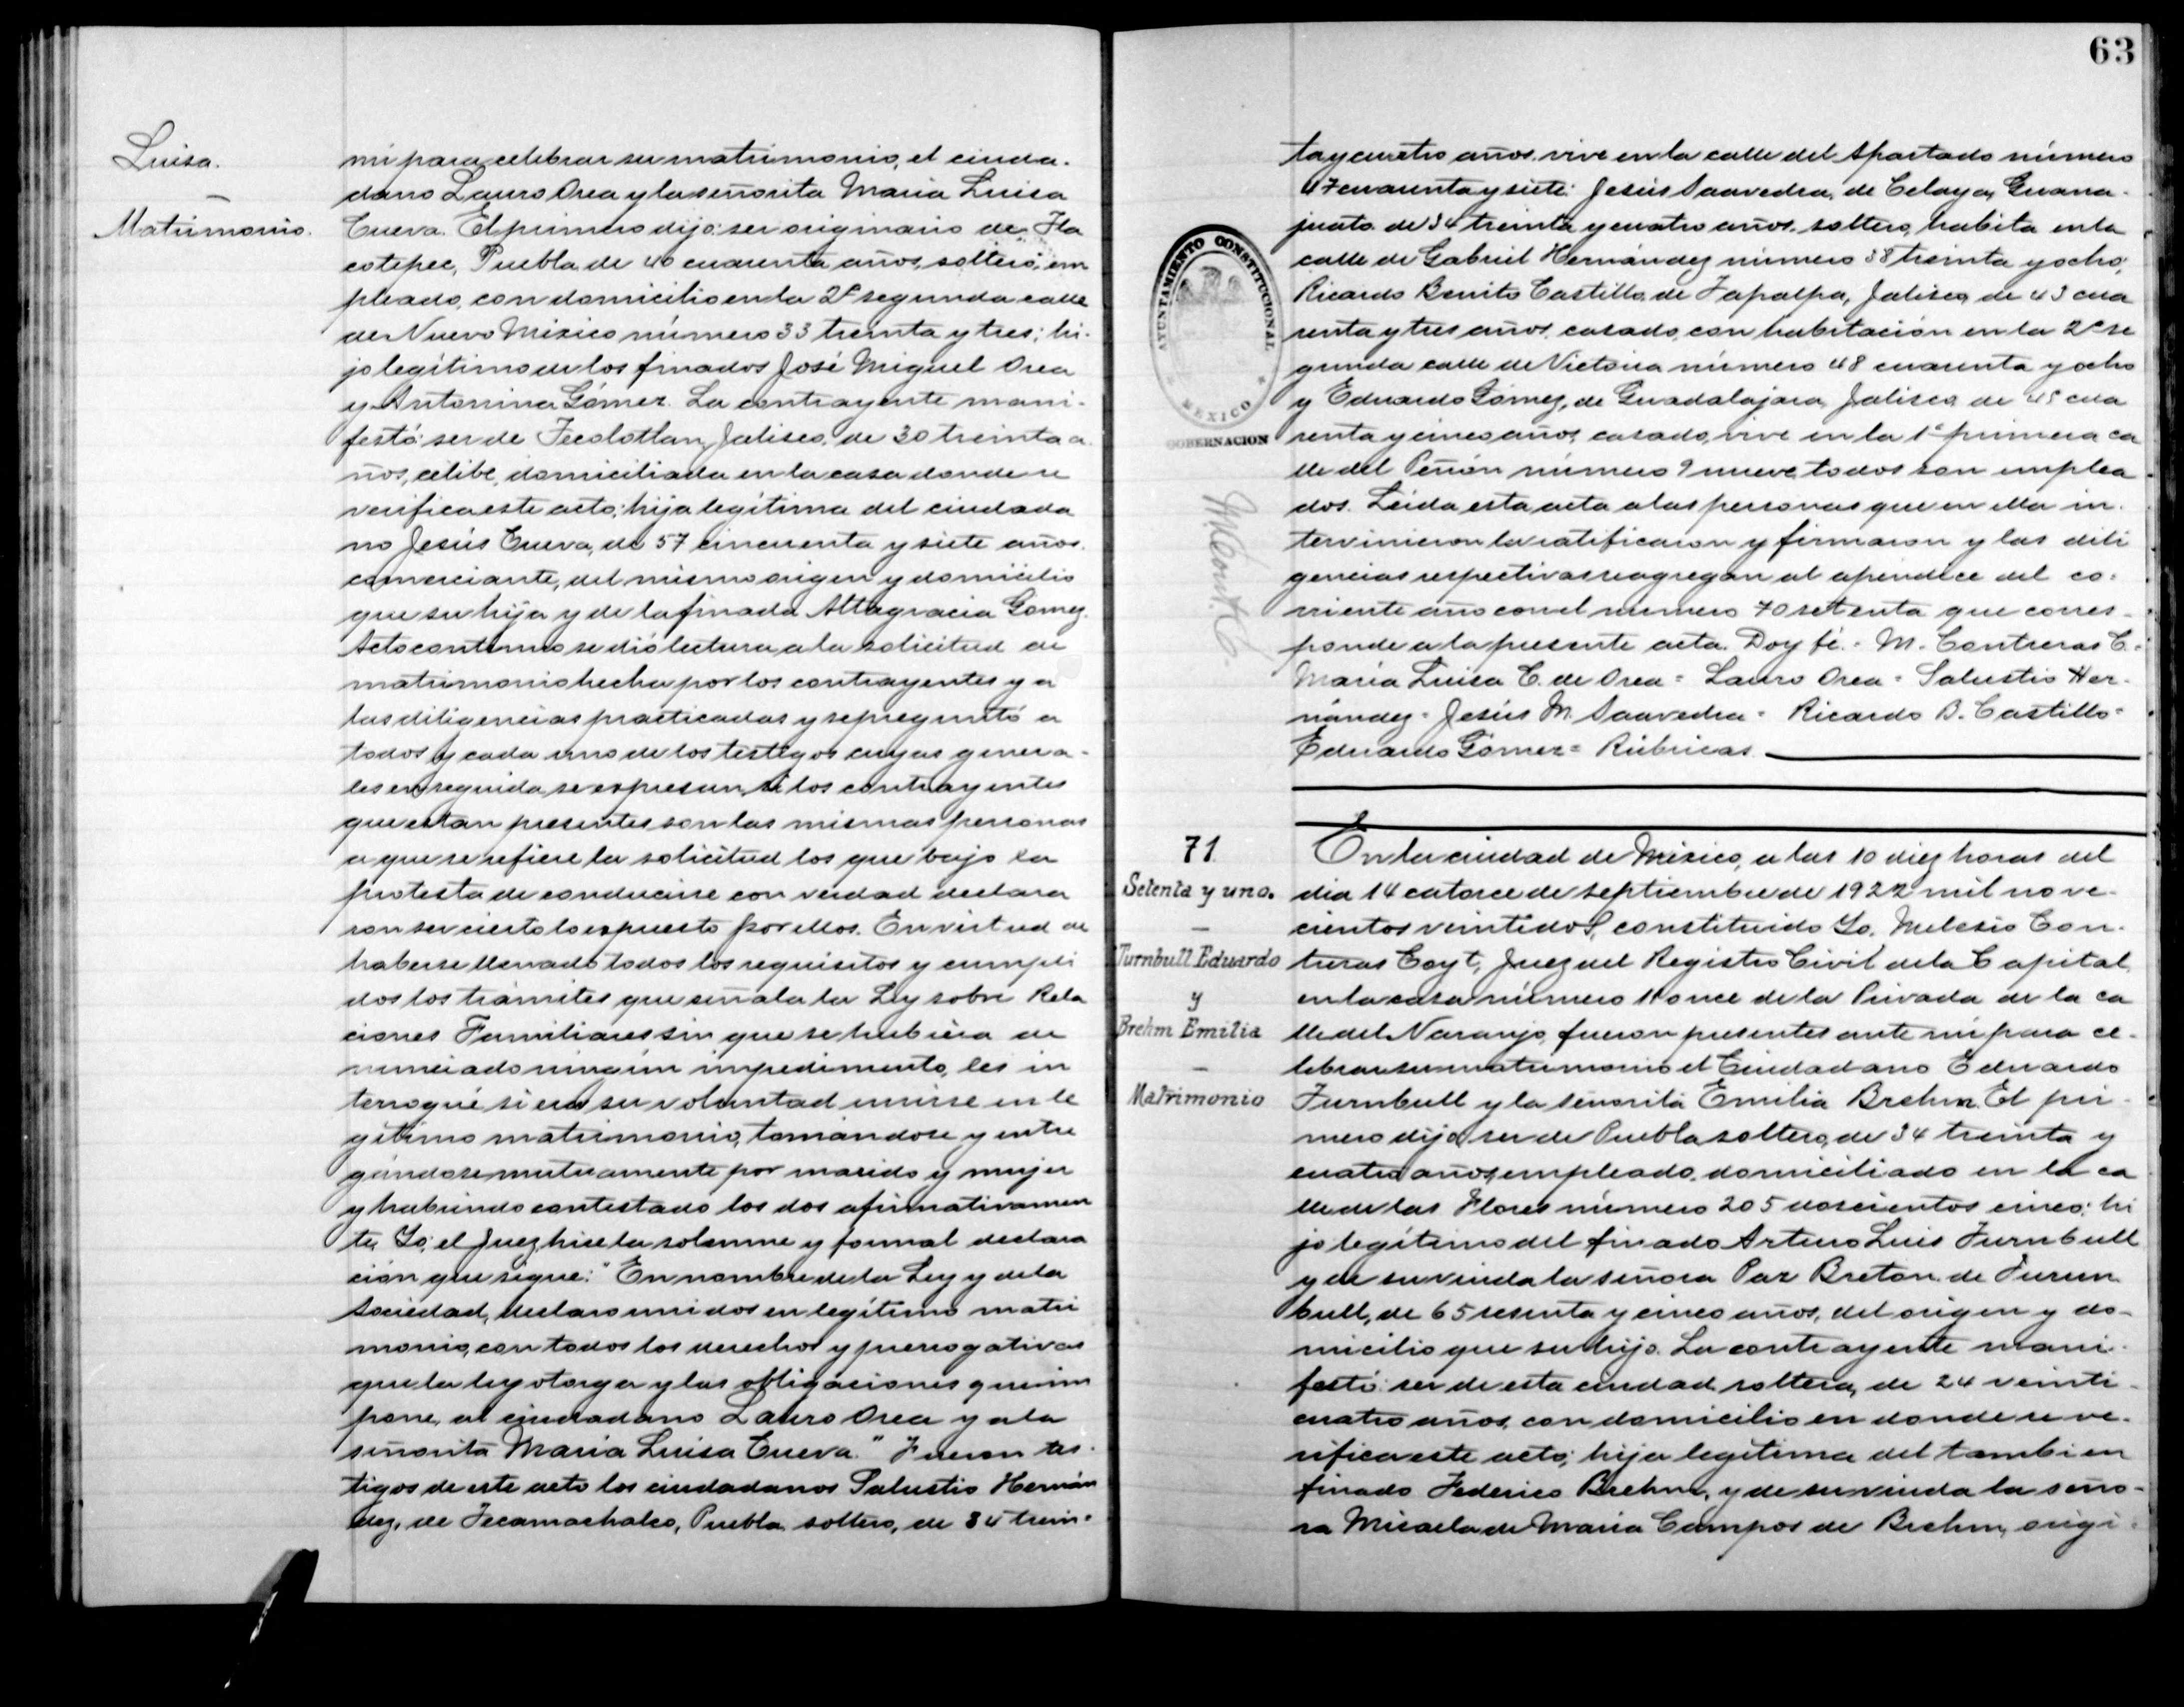 Luisa.
Matrimonio.
mi para celebrar su matrimonio, el ciuda-
dano Lauro Orea y la señorita María Luisa
Cueva. El primero dijo: ser originario de Tla
cotepec, Puebla, de 40 cuarenta años, soltero, em
pleado, con domicilio en la 2ª segunda calle
de Nuevo México número 33 treinta y tres; hi-
jo legítimo de los finados José Miguel Orea
y Antonina Gómez. La contrayente mani-
festó: ser de Tecolotlan, Jalisco, de 30 treinta a
ños, célibe, domiciliada en la casa donde se
verifica este acto; hija legítima del ciudada
no Jesús Cueva, de 57 cincuenta y siete años,
comerciante, del mismo origen y domicilio
que su hija y de la finada Altagracia Gómez.
Acto continuo se dió lectura a la solicitud de
matrimonio hecha por los contrayentes y a
las diligencias practicadas y se preguntó a
todos y cada uno de los testigos cuyas genera-
les en seguida se expresan, si los contrayentes
que estan presentes son las mismas personas
a que se refiere la solicitud los que bajo la
protesta de conducirse con verdad declara
ron ser cierto lo expuesto por ellos. En virtud de
haberse llenado todos los requisitos y cumpli
dos los trámites que señala la Ley sobre Rela
ciones Familiares sin que se hubiera de
nunciado ningún impedimento, les in
terrogué si era su voluntad unirse en le
gítimo matrimonio, tomándose y entre
gándose mutuamente por marido y mujer
y habiendo contestado los dos afirmativamen
te, Yo, el Juez hice la solemne y formal declara
ción que sigue: "En nombre de la Ley y de la
Sociedad, declaro unidos en legítimo matri
monio, con todos los derechos y prerrogativas
que la ley otorga y las obligaciones que im
pone, al ciudadano Lauro Orea y a la
señorita María Luisa Cueva." Fueron tes-
tigos de este acto los ciudadanos Salustio Hernán
dez, de Tecamachalco, Puebla, soltero, de 34 trein-
63
ta y cuatro años, vive en la calle del Apartado número
47 cuarenta y siete: Jesús Saavedra, de Celaya, Guana-
juato, de 34 treinta y cuatro años, soltero, habita en la
calle de Gabriel Hernández número 38 treinta y ocho;
Ricardo Benito Castillo, de Tapalpa, Jalisco, de 43 cua
renta y tres años, casado, con habitación en la 2ª se
gunda calle de Victoria número 48 cuarenta y ocho
y Eduardo Gómez, de Guadalajara, Jalisco, de 45 cua
renta y cinco años, casado, vive en la 1ª primera ca
lle del Peñón número 9 nueve, todos son emplea
dos. Leída esta acta a las personas que en ella in-
tervinieron la ratificaron y firmaron y las dili
gencias respectivas se agregan al apéndice del co-
rriente año con el número 70 setenta que corres-
ponde a la presente acta. Doy fé.- M. Contreras C.=
María Luisa C. de Orea = Lauro Orea = Salustio Her-
nández = Jesús M. Saavedra = Ricardo B. Castillo =
Eduardo Gómez = Rúbricas.
AYUNTAMIENTO CONSTITUCIONAL
MEXICO
GOBERNACION
71.
Setenta y uno.
Turnbull Eduardo
y
Brehm Emilia
Matrimonio
En la ciudad de México, a las 10 diez horas del
día 14 catorce de septiembre de 1922 mil nove-
cientos veintidos, constituido Yo, Melesio Con-
treras Coyt, Juez del Registro Civil de la Capital,
en la casa número 11 once de la Privada de la ca
lle del Naranjo, fueron presentes ante mí para ce-
lebrar su matrimonio el Ciudadano Eduardo
Turnbull y la señorita Emilia Brehm. El pri-
mero dijo ser de Puebla soltero, de 34 treinta y
cuatro años, empleado, domiciliado en la ca
lle de las Flores número 205 doscientos cinco: hi
jo legítimo del finado Arturo Luis Turnbull
y de su viuda la señora Paz Breton de Turun
bull, de 65 sesenta y cinco años, del origen y do-
micilio que su hijo. La contrayente mani-
festó: ser de esta ciudad, soltera, de 24 veinti-
cuatro años, con domicilio en donde se ve-
rifica este acto; hija legítima del tambien
finado Federico Brehm, y de su viuda la seño-
ra Micaela de María Campos de Brehm, origi-